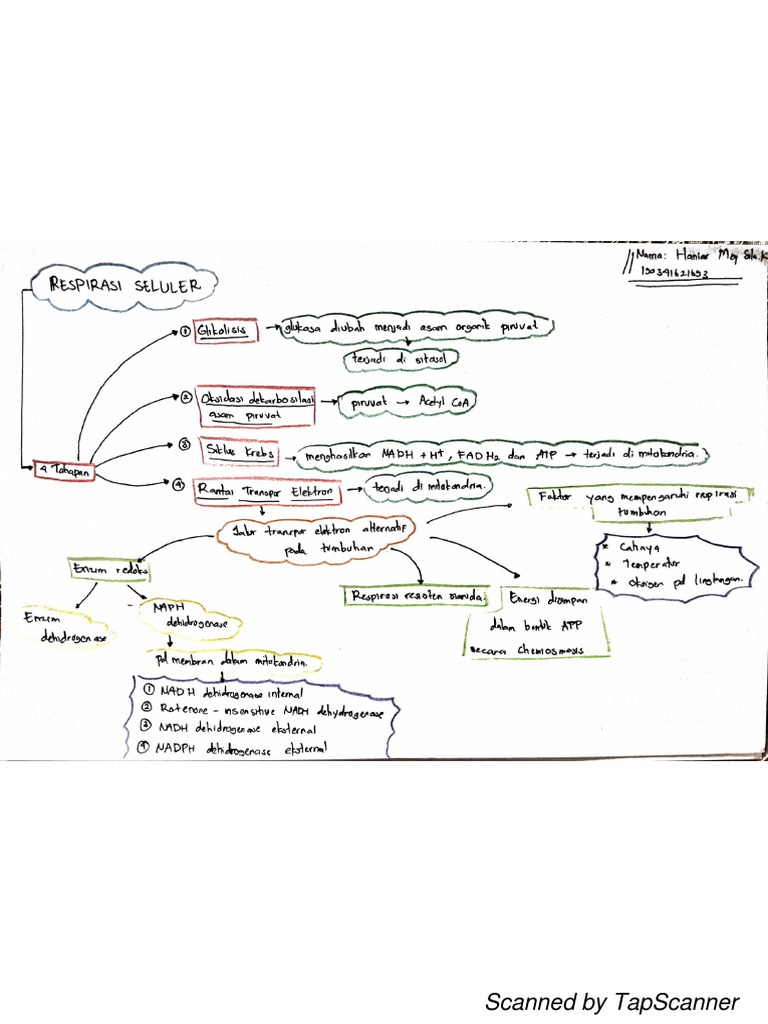 Nama: Haniar Mey Sila.K
190341621693
RESPIRASI SELULER
4 Tahapan
① Glikolisis
glukosa diubah menjadi asam organik piruvat
terjadi di sitosol
② Oksidasi dekarboksilasi
asam piruvat
piruvat → Acetyl CoA
③ Siklus Krebs
menghasilkan NADH + H⁺, FADH2 dan ATP → terjadi di mitokondria.
④ Rantai Transpor Elektron
terjadi di mitokondria.
Jalur transpor elektron alternatif
pada tumbuhan
Faktor yang mempengaruhi respirasi
tumbuhan
* Cahaya
* Temperatur
* Oksigen pd lingkungan.
Enzim redoks
Enzim
dehidrogenase
NADPH
dehidrogenase
pd membran dalam mitokondria.
① NADH dehidrogenase internal
② Rotenone - insensitive NADH dehydrogenase
③ NADH dehidrogenase eksternal
④ NADPH dehidrogenase eksternal
Respirasi resisten sianida.
Energi disimpan
dalam bentuk ATP
secara chemiosmosis
Scanned by TapScanner